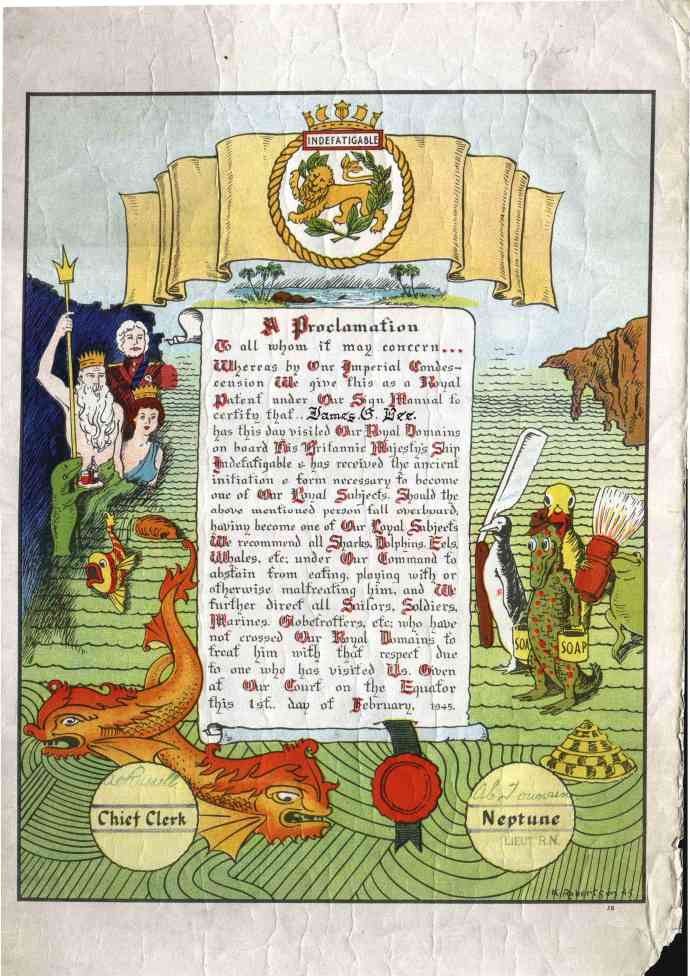 INDEFATIGABLE
A Proclamation
To all whom it may concern...
Whereas by Our Imperial Condes-
cension We give this as a Royal
Patent under Our Sign Manual to
certify that.. James. G. Bee.
has this day visited Our Royal Domains
on board His Britannic Majesty's Ship
Indefatigable & has received the ancient
initiation & form necessary to become
one of Our Loyal Subjects. Should the
above mentioned person fall overboard,
having become one of Our Loyal Subjects
We recommend all Sharks, Dolphins, Eels,
Whales, etc; under Our Command to
abstain from eating, playing with or
otherwise maltreating him, and We
further direct all Sailors, Soldiers,
Marines, Globetrotters, etc; who have
not crossed Our Royal Domains to
treat him with that respect due
to one who has visited Us. Given
at Our Court on the Equator
this 1st.. day of February, 1945.
SOA
SOAP
Chief Clerk
Neptune
LIEUT R.N.